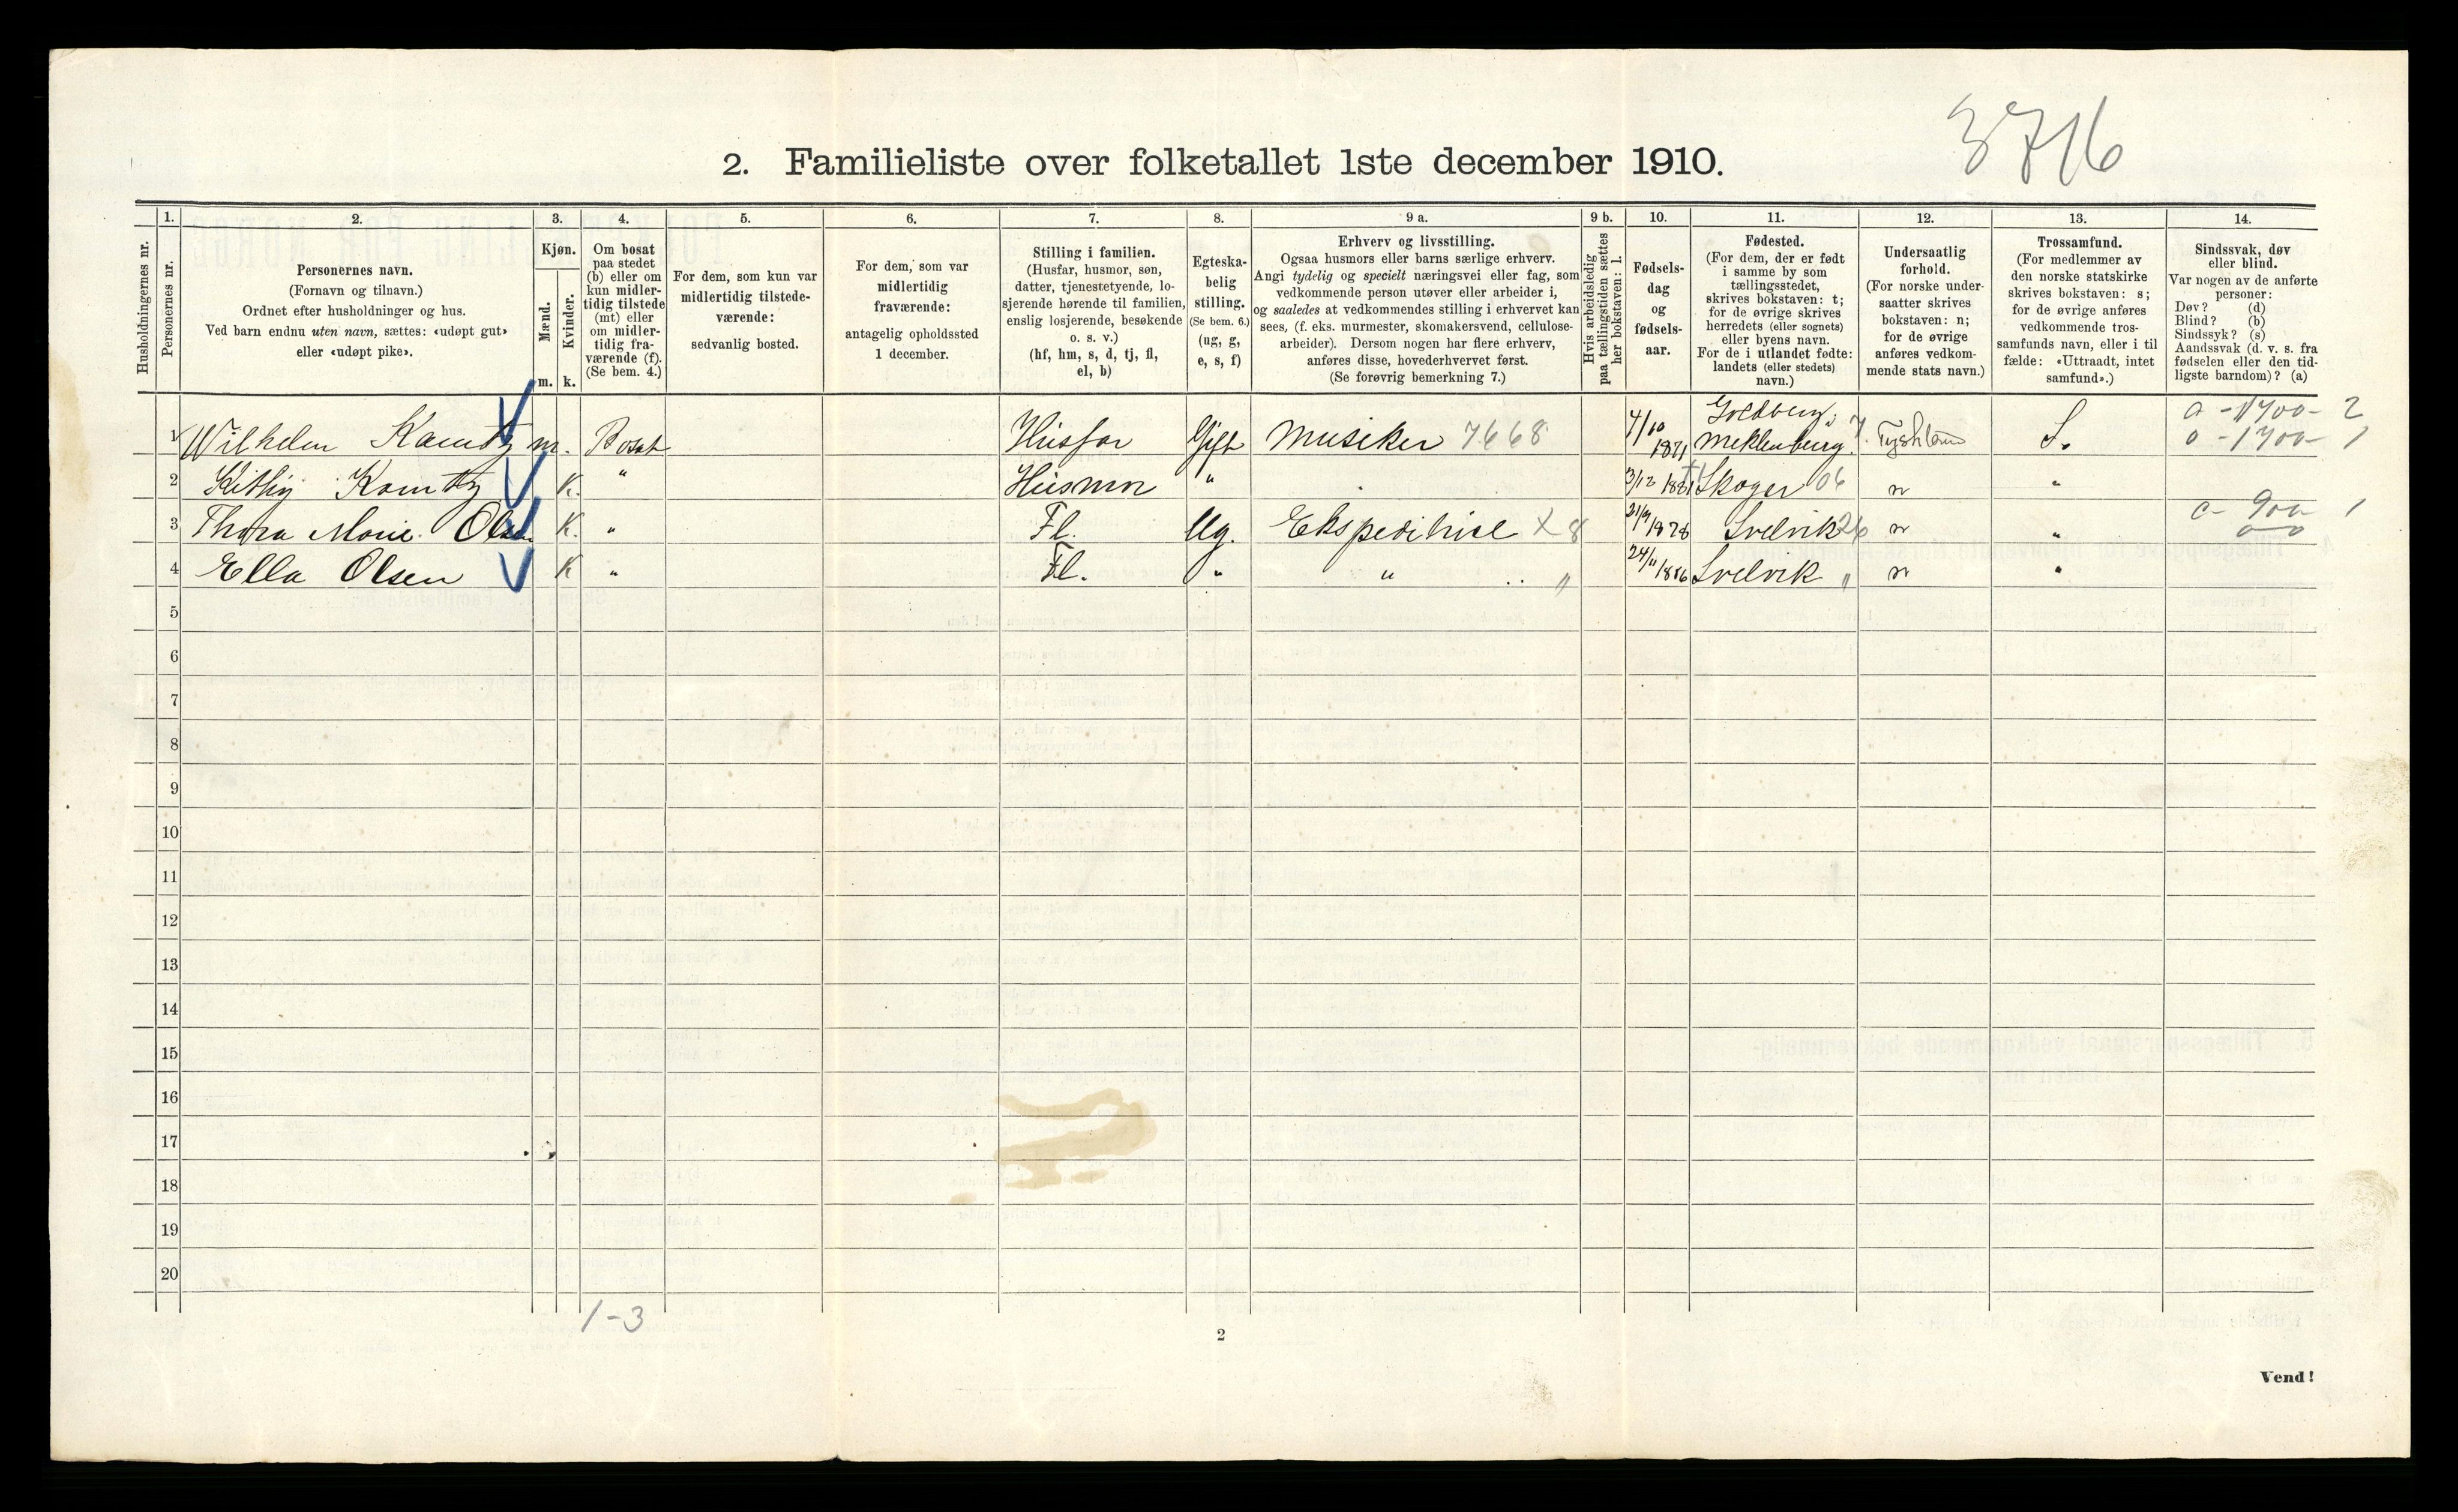 3716
2. Familieliste over folketallet 1ste december 1910.
Husholdningernes nr.
1.
Personernes nr.
2.
Personernes navn.
(Fornavn og tilnavn.)
Ordnet efter husholdninger og hus.
Ved barn endnu uten navn, sættes: «udøpt gut»
eller «udøpt pike».
3.
Kjøn.
Mænd.
Kvinder.
m. k.
4.
Om bosat
paa stedet
(b) eller om
kun midler-
tidig tilstede
(mt) eller
om midler-
tidig fra-
værende (f).
(Se bem. 4.)
5.
For dem, som kun var
midlertidig tilstede-
værende:
sedvanlig bosted.
6.
For dem, som var
midlertidig
fraværende:
antagelig opholdssted
1 december.
7.
Stilling i familien.
(Husfar, husmor, søn,
datter, tjenestetyende, lo-
sjerende hørende til familien,
enslig losjerende, besøkende
o. s. v.)
(hf, hm, s, d, tj, fl,
el, b)
8.
Egteska-
belig
stilling.
(Se bem. 6.)
(ug, g,
e, s, f)
9 a.
Erhverv og livsstilling.
Ogsaa husmors eller barns særlige erhverv.
Angi tydelig og specielt næringsvei eller fag, som
vedkommende person utøver eller arbeider i,
og saaledes at vedkommendes stilling i erhvervet kan
sees, (f. eks. murmester, skomakersvend, cellulose-
arbeider). Dersom nogen har flere erhverv,
anføres disse, hovederhvervet først.
(Se forøvrig bemerkning 7.)
9 b.
Hvis arbeidsledig
paa tællingstiden sættes
her bokstaven: l.
10.
Fødsels-
dag
og
fødsels-
aar.
11.
Fødested.
(For dem, der er født
i samme by som
tællingsstedet,
skrives bokstaven: t;
for de øvrige skrives
herredets (eller sognets)
eller byens navn.
For de i utlandet fødte:
landets (eller stedets)
navn.)
12.
Undersaatlig
forhold.
(For norske under-
saatter skrives
bokstaven: n;
for de øvrige
anføres vedkom-
mende stats navn.)
13.
Trossamfund.
(For medlemmer av
den norske statskirke
skrives bokstaven: s;
for de øvrige anføres
vedkommende tros-
samfunds navn, eller i til
fælde: «Uttraadt, intet
samfund».)
14.
Sindssvak, døv
eller blind.
Var nogen av de anførte
personer:
Døv? (d)
Blind? (b)
Sindssyk? (s)
Aandssvak (d. v. s. fra
fødselen eller den tid-
ligste barndom)? (a)
Goldberg; 0 -1700- 2
1 Wilhelm Kamtz m. Bosat Husfar Gift Musiker 7668 4/10 1871 Meklenburg. 7. Tyskland S. 0 -1700- 1
2 Kitty Kamtz K. " Husmor " 3/12 1881 Skoger 06 n "
3 Thora Marie Olsen K. " Fl. Ug. Ekspeditrise X 8 1878 Svelvik 26 n " 0- 900 1
4 Ella Olsen K " Fl. " " " 24/11 1886 Svelvik " n "
5
6
7
8
9
10
11
12
13
14
15
16
17
18
19
20
1-3
2
Vend!